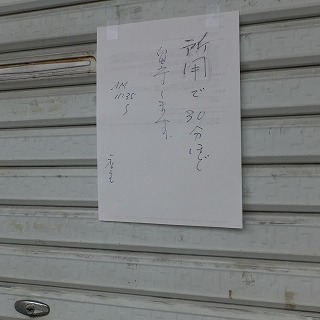 所用で30分ほど
留守します
AM
11:35
〜